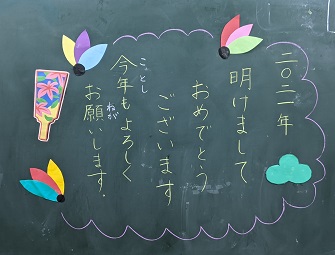 二〇二一年
明けまして
おめでとう
ございます
ことし
今年もよろしく
ねが
お願いします.